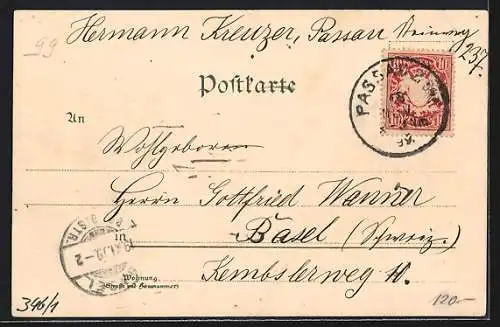 99
Hermann Kreuzer, Passau Steinweg
237.
Postkarte
10
PASSAU
An
Wohlgeboren
Herrn Gottfried Wanner
in Basel (Schweiz.)
Wohnung.
(Straße und Hausnummer)
Kembslerweg 11.
BASEL
STR.
346/1
120.-